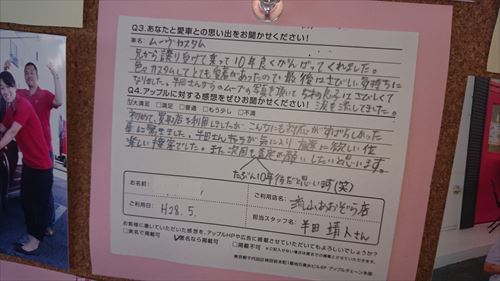 Q3.あなたと愛車との思い出をお聞かせください!
車名: ムーヴカスタム
兄から譲り受けて乗って10年良くがんばってくれました。
色々カスタムしてとても愛着があったので最後はさびしい気持ちに
なりました。半田さんからのムーヴの写真を頂いてうちの息子はさびしくて
涙を流してました。
Q4.アップルに対する感想をぜひお聞かせください!
大満足 □満足 □普通 □もう少し □不満
初めて、買取店を利用しましたが、こんなにも対応がすばらしかった
事に驚きました。半田さん
楽しい検査でした。また、次回も査定お願いしたいと思います。
たぶん10年後だと思いますが(笑)
お名前:
ご利用店名: 流山おおぞら店
ご利用日: H28.5.
担当スタッフ名: 半田 靖人さん
お客様に書いていただいた感想を、アップルHPや広告に掲載させていただいてもよろしいでしょうか?
□実名で掲載可 匿名なら掲載可 □掲載不可 ※ご記入がない場合は匿名での掲載とさせていただきます。
東京都千代田区神田